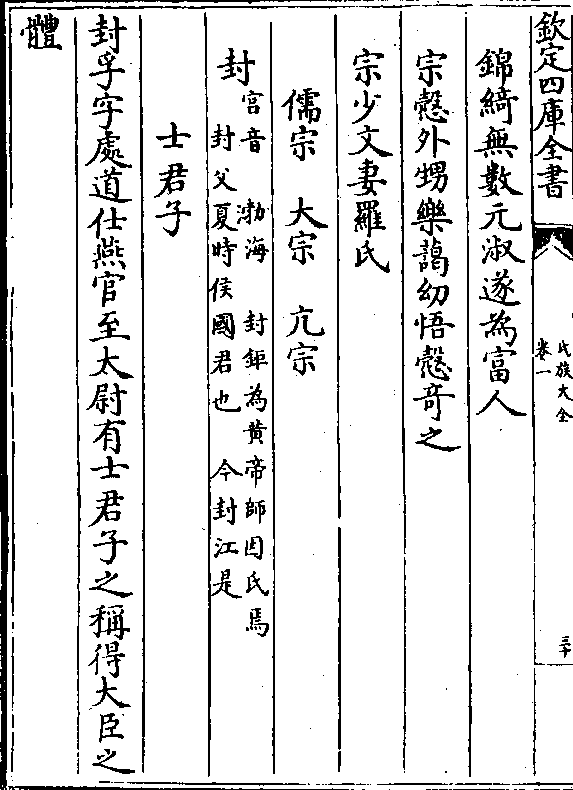 欽定四庫全書
氏族大全
卷一
三十
錦綺無數元淑遂為富人
宗慤外甥樂藹幼悟慤奇之
宗少文妻羅氏
儒宗 大宗 亢宗
封
宮音 渤海 封鉅為黃帝師因氏焉
封父夏時侯國君也 今封江是
士君子
封孚字處道仕燕官至太尉有士君子之稱得大臣之
體